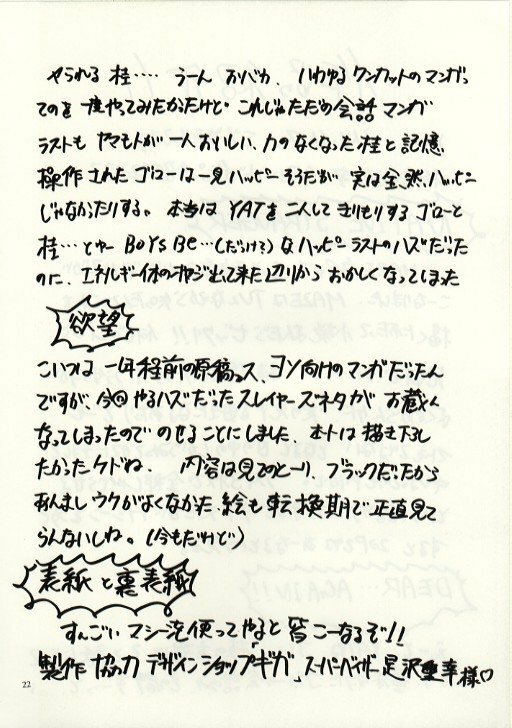 やられる 桂‥‥ うーん おりべカ、いわゆるワンカットのマンガっ
てのを一度やってみたかったけど これじゃただの会話マンガ
ラストも ヤマモトが一人おいしい、力のなくなった桂と記憶
操作されたゴローは一見ハッピーそうだが 実は全然ハッピー
じゃなかたりする。 本当は YATを二人してきりもりするゴローと
桂…とゆー BOYS BE…(だっけ?)なハッピーラストのハズだった
のに、エネルギー体のオヤジ出て来た辺りから おかしくなってしまった
欲望
こいつは 一年程前の原稿っス、ヨソ向けのマンガだったん
ですが、今回やるハズだったスレイヤーズネタが お蔵入
なってしまったので のせることにしました、ホントは描き下し
たかったケドね。 内容は見てのとーり、ブラックだったから
あんましウケがよくなかった、絵も転換期で正直見て
らんないしね。(今もだけれど)
表紙と裏表紙
すんごい マシン 使ってやると 皆こーなるぞ!!
製作協力 デザインショップ「ギガ」 スーパーバイザー 足沢重幸様♡
22